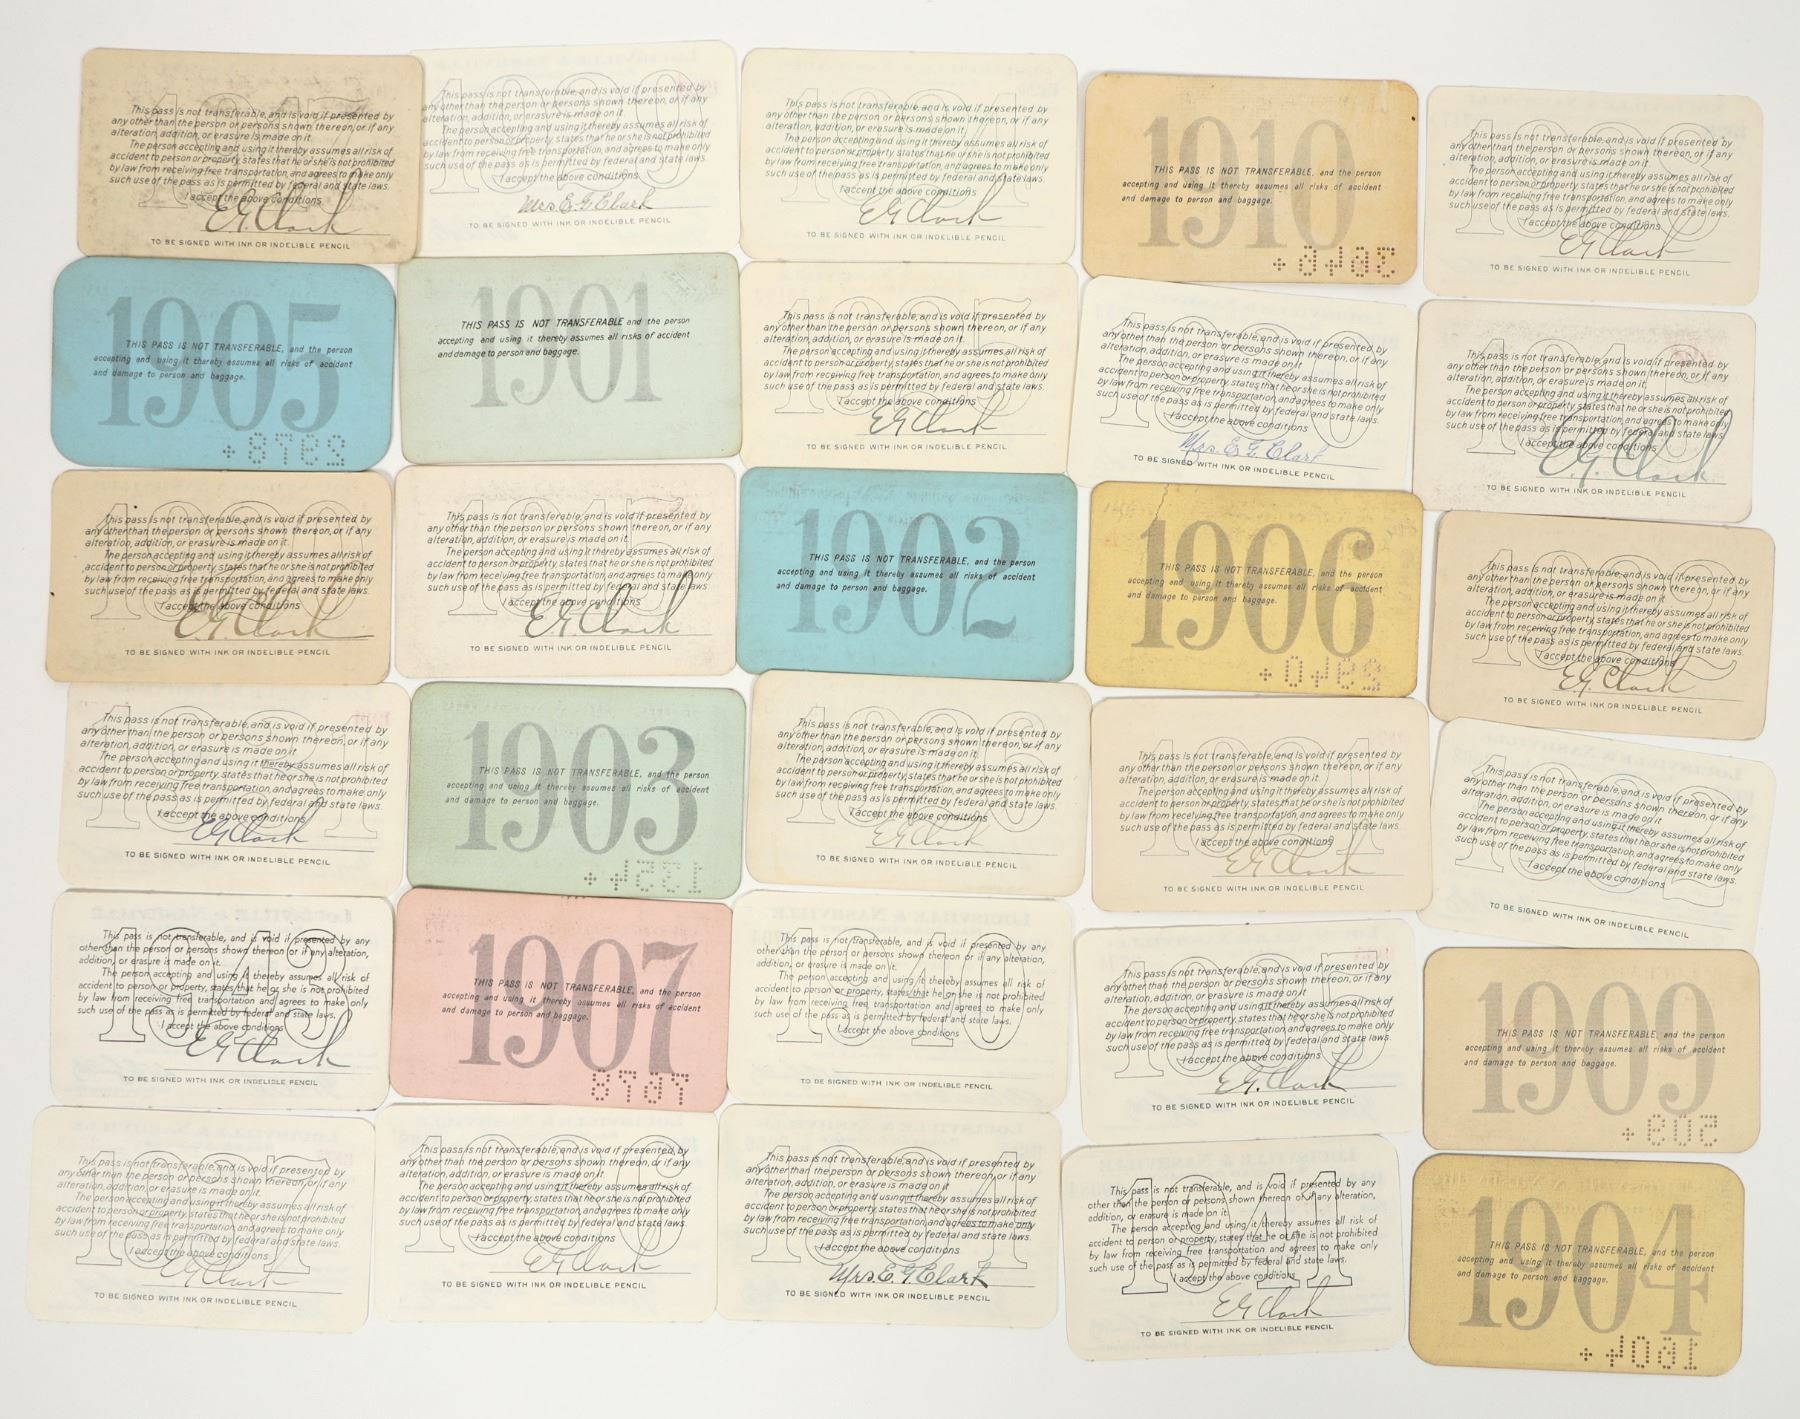 1917
This pass is not transferable, and is void if presented by
any other than the person or persons shown thereon, or if any
alteration, addition, or erasure is made on it.
The person accepting and using it thereby assumes all risk of
accident to person or property, states that he or she is not prohibited
by law from receiving free transportation, and agrees to make only
such use of the pass as is permitted by federal and state laws.
I accept the above conditions
E G Clark
TO BE SIGNED WITH INK OR INDELIBLE PENCIL
1929
This pass is not transferable, and is void if presented by
any other than the person or persons shown thereon, or if any
alteration, addition, or erasure is made on it.
The person accepting and using it thereby assumes all risk of
accident to person or property, states that he or she is not prohibited
by law from receiving free transportation, and agrees to make only
such use of the pass as is permitted by federal and state laws.
I accept the above conditions
Mrs E G Clark
TO BE SIGNED WITH INK OR INDELIBLE PENCIL
1924
This pass is not transferable, and is void if presented by
any other than the person or persons shown thereon, or if any
alteration, addition, or erasure is made on it.
The person accepting and using it thereby assumes all risk of
accident to person or property, states that he or she is not prohibited
by law from receiving free transportation, and agrees to make only
such use of the pass as is permitted by federal and state laws.
I accept the above conditions
E G Clark
TO BE SIGNED WITH INK OR INDELIBLE PENCIL
1910
THIS PASS IS NOT TRANSFERABLE, and the person
accepting and using it thereby assumes all risks of accident
and damage to person and baggage.
This pass is not transferable, and is void if presented by
any other than the person or persons shown thereon, or if any
alteration, addition, or erasure is made on it.
The person accepting and using it thereby assumes all risk of
accident to person or property, states that he or she is not prohibited
by law from receiving free transportation, and agrees to make only
such use of the pass as is permitted by federal and state laws.
I accept the above conditions
E G Clark
TO BE SIGNED WITH INK OR INDELIBLE PENCIL
1905
THIS PASS IS NOT TRANSFERABLE, and the person
accepting and using it thereby assumes all risks of accident
and damage to person and baggage.
1901
THIS PASS IS NOT TRANSFERABLE and the person
accepting and using it thereby assumes all risks of accident
and damage to person and baggage.
1925
This pass is not transferable, and is void if presented by
any other than the person or persons shown thereon, or if any
alteration, addition, or erasure is made on it.
The person accepting and using it thereby assumes all risk of
accident to person or property, states that he or she is not prohibited
by law from receiving free transportation, and agrees to make only
such use of the pass as is permitted by federal and state laws.
I accept the above conditions
E G Clark
TO BE SIGNED WITH INK OR INDELIBLE PENCIL
1930
This pass is not transferable, and is void if presented by
any other than the person or persons shown thereon, or if any
alteration, addition, or erasure is made on it.
The person accepting and using it thereby assumes all risk of
accident to person or property, states that he or she is not prohibited
by law from receiving free transportation, and agrees to make only
such use of the pass as is permitted by federal and state laws.
I accept the above conditions
Mrs. E. G. Clark
TO BE SIGNED WITH INK OR INDELIBLE PENCIL
This pass is not transferable, and is void if presented by
any other than the person or persons shown thereon, or if any
alteration, addition, or erasure is made on it.
The person accepting and using it thereby assumes all risk of
accident to person or property, states that he or she is not prohibited
by law from receiving free transportation, and agrees to make only
such use of the pass as is permitted by federal and state laws.
I accept the above conditions
E. G. Clark
TO BE SIGNED WITH INK OR INDELIBLE PENCIL
This pass is not transferable, and is void if presented by
any other than the person or persons shown thereon, or if any
alteration, addition, or erasure is made on it.
The person accepting and using it thereby assumes all risk of
accident to person or property, states that he or she is not prohibited
by law from receiving free transportation, and agrees to make only
such use of the pass as is permitted by federal and state laws.
I accept the above conditions
E. G. Clark
TO BE SIGNED WITH INK OR INDELIBLE PENCIL
1915
This pass is not transferable, and is void if presented by
any other than the person or persons shown thereon, or if any
alteration, addition, or erasure is made on it.
The person accepting and using it thereby assumes all risk of
accident to person or property, states that he or she is not prohibited
by law from receiving free transportation, and agrees to make only
such use of the pass as is permitted by federal and state laws.
I accept the above conditions
E G Clark
TO BE SIGNED WITH INK OR INDELIBLE PENCIL
1902
THIS PASS IS NOT TRANSFERABLE, and the person
accepting and using it thereby assumes all risks of accident
and damage to person and baggage.
1906
THIS PASS IS NOT TRANSFERABLE, and the person
accepting and using it thereby assumes all risks of accident
and damage to person and baggage.
1922
This pass is not transferable, and is void if presented by
any other than the person or persons shown thereon, or if any
alteration, addition, or erasure is made on it.
The person accepting and using it thereby assumes all risk of
accident to person or property, states that he or she is not prohibited
by law from receiving free transportation, and agrees to make only
such use of the pass as is permitted by federal and state laws.
I accept the above conditions
E. G. Clark
TO BE SIGNED WITH INK OR INDELIBLE PENCIL
1921
This pass is not transferable, and is void if presented by
any other than the person or persons shown thereon, or if any
alteration, addition, or erasure is made on it.
The person accepting and using it thereby assumes all risk of
accident to person or property, states that he or she is not prohibited
by law from receiving free transportation, and agrees to make only
such use of the pass as is permitted by federal and state laws.
I accept the above conditions
E G Clark
TO BE SIGNED WITH INK OR INDELIBLE PENCIL
1903
THIS PASS IS NOT TRANSFERABLE, and the person
accepting and using it thereby assumes all risks of accident
and damage to person and baggage.
This pass is not transferable, and is void if presented by
any other than the person or persons shown thereon, or if any
alteration, addition, or erasure is made on it.
The person accepting and using it thereby assumes all risk of
accident to person or property, states that he or she is not prohibited
by law from receiving free transportation, and agrees to make only
such use of the pass as is permitted by federal and state laws.
I accept the above conditions
E G Clark
TO BE SIGNED WITH INK OR INDELIBLE PENCIL
This pass is not transferable, and is void if presented by
any other than the person or persons shown thereon, or if any
alteration, addition, or erasure is made on it.
The person accepting and using it thereby assumes all risk of
accident to person or property, states that he or she is not prohibited
by law from receiving free transportation, and agrees to make only
such use of the pass as is permitted by federal and state laws.
I accept the above conditions
E G Clark
TO BE SIGNED WITH INK OR INDELIBLE PENCIL
1932
This pass is not transferable, and is void if presented by
any other than the person or persons shown thereon, or if any
alteration, addition, or erasure is made on it.
The person accepting and using it thereby assumes all risk of
accident to person or property, states that he or she is not prohibited
by law from receiving free transportation, and agrees to make only
such use of the pass as is permitted by federal and state laws.
I accept the above conditions
TO BE SIGNED WITH INK OR INDELIBLE PENCIL
This pass is not transferable, and is void if presented by any
other than the person or persons shown thereon or if any alteration,
addition, or erasure is made on it.
The person accepting and using it thereby assumes all risk of
accident to person or property, states that he or she is not prohibited
by law from receiving free transportation and agrees to make only
such use of the pass as is permitted by federal and state laws.
I accept the above conditions
E G Clark
TO BE SIGNED WITH INK OR INDELIBLE PENCIL
1907
THIS PASS IS NOT TRANSFERABLE, and the person
accepting and using it thereby assumes all risks of accident
and damage to person and baggage.
1940
This pass is not transferable, and is void if presented by any
other than the person or persons shown thereon or if any alteration,
addition, or erasure is made on it.
The person accepting and using it thereby assumes all risk of
accident to person or property, states that he or she is not prohibited
by law from receiving free transportation and agrees to make only
such use of the pass as is permitted by federal and state laws.
I accept the above conditions
TO BE SIGNED WITH INK OR INDELIBLE PENCIL
1935
This pass is not transferable, and is void if presented by
any other than the person or persons shown thereon, or if any
alteration, addition, or erasure is made on it.
The person accepting and using it thereby assumes all risk of
accident to person or property, states that he or she is not prohibited
by law from receiving free transportation, and agrees to make only
such use of the pass as is permitted by federal and state laws.
I accept the above conditions
E G. Clark
TO BE SIGNED WITH INK OR INDELIBLE PENCIL
1909
THIS PASS IS NOT TRANSFERABLE, and the person
accepting and using it thereby assumes all risks of accident
and damage to person and baggage.
1937
This pass is not transferable, and is void if presented by
any other than the person or persons shown thereon, or if any
alteration, addition, or erasure is made on it.
The person accepting and using it thereby assumes all risk of
accident to person or property, states that he or she is not prohibited
by law from receiving free transportation, and agrees to make only
such use of the pass as is permitted by federal and state laws.
I accept the above conditions
E G Clark
TO BE SIGNED WITH INK OR INDELIBLE PENCIL
1936
This pass is not transferable, and is void if presented by
any other than the person or persons shown thereon, or if any
alteration, addition, or erasure is made on it.
The person accepting and using it thereby assumes all risk of
accident to person or property, states that he or she is not prohibited
by law from receiving free transportation, and agrees to make only
such use of the pass as is permitted by federal and state laws.
I accept the above conditions
E G Clark
TO BE SIGNED WITH INK OR INDELIBLE PENCIL
This pass is not transferable, and is void if presented by
any other than the person or persons shown thereon, or if any
alteration, addition, or erasure is made on it.
The person accepting and using it thereby assumes all risk of
accident to person or property, states that he or she is not prohibited
by law from receiving free transportation, and agrees to make only
such use of the pass as is permitted by federal and state laws.
I accept the above conditions
Mrs E. G Clark
TO BE SIGNED WITH INK OR INDELIBLE PENCIL
1941
This pass is not transferable, and is void if presented by any
other than the person or persons shown thereon or if any alteration,
addition, or erasure is made on it.
The person accepting and using it thereby assumes all risk of
accident to person or property, states that he or she is not prohibited
by law from receiving free transportation and agrees to make only
such use of the pass as is permitted by federal and state laws.
I accept the above conditions
E G Clark
TO BE SIGNED WITH INK OR INDELIBLE PENCIL
1904
THIS PASS IS NOT TRANSFERABLE, and the person
accepting and using it thereby assumes all risks of accident
and damage to person and baggage.